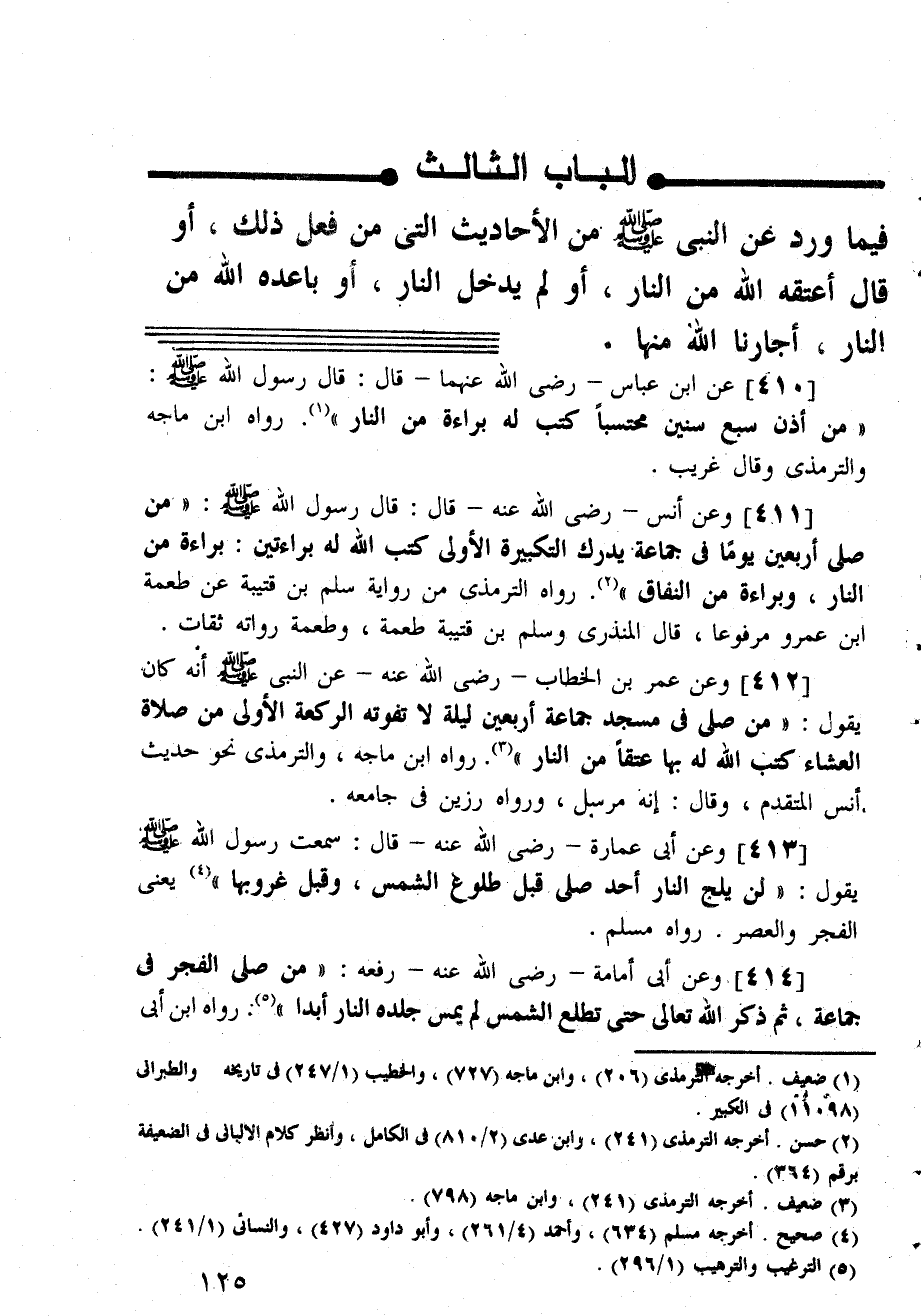 الباب الثالث
فيما ورد عن النبى ﷺ من الأحاديث التى من فعل ذلك ، أو
قال أعتقه الله من النار ، أو لم يدخل النار ، أو باعده الله من
النار ، أجارنا الله منها .
[٤١٠] عن ابن عباس – رضى الله عنهما – قال : قال رسول الله ﷺ :
« من أذن سبع سنين محتسباً كتب له براءة من النار »(١). رواه ابن ماجه
والترمذى وقال غريب .
[٤١١] وعن أنس – رضى الله عنه – قال : قال رسول الله ﷺ : « من
صلى أربعين يومًا فى جماعة يدرك التكبيرة الأولى كتب الله له براءتين : براءة من
النار ، وبراءة من النفاق »(٢). رواه الترمذى من رواية سلم بن قتيبة عن طعمة
ابن عمرو مرفوعا ، قال المنذرى وسلم بن قتيبة طعمة ، وطعمة رواته ثقات .
[٤١٢] وعن عمر بن الخطاب – رضى الله عنه – عن النبى ﷺ أنه كان
يقول : « من صلى فى مسجد جماعة أربعين ليلة لا تفوته الركعة الأولى من صلاة
العشاء كتب الله له بها عتقاً من النار »(٣). رواه ابن ماجه ، والترمذى نحو حديث
أنس المتقدم ، وقال : إنه مرسل ، ورواه رزين فى جامعه .
[٤١٣] وعن أبى عمارة – رضى الله عنه – قال : سمعت رسول الله ﷺ
يقول : « لن يلج النار أحد صلى قبل طلوع الشمس ، وقبل غروبها »(٤) يعنى
الفجر والعصر . رواه مسلم .
[٤١٤] وعن أبى أمامة – رضى الله عنه – رفعه : « من صلى الفجر فى
جماعة ، ثم ذكر الله تعالى حتى تطلع الشمس لم يمس جلده النار أبدا »(٥). رواه ابن أبى
(١) ضعيف . أخرجه الترمذى (٢٠٦) ، وابن ماجه (٧٢٧) ، والخطيب (٢٤٧/١) فى تاريخه والطبرانى
(١١٠٩٨) فى الكبير .
(٢) حسن . أخرجه الترمذى (٢٤١) ، وابن عدى (٨١٠/٢) فى الكامل ، وأنظر كلام الالبانى فى الضعيفة
برقم (٣٦٤) .
(٣) ضعيف . أخرجه الترمذى (٢٤١) ، وابن ماجه (٧٩٨) .
(٤) صحيح . أخرجه مسلم (٦٣٤) ، وأحمد (٢٦١/٤) ، وأبو داود (٤٢٧) ، والنسائى (٢٤١/١) .
(٥) الترغيب والترهيب (٢٩٦/١) .
١٢٥